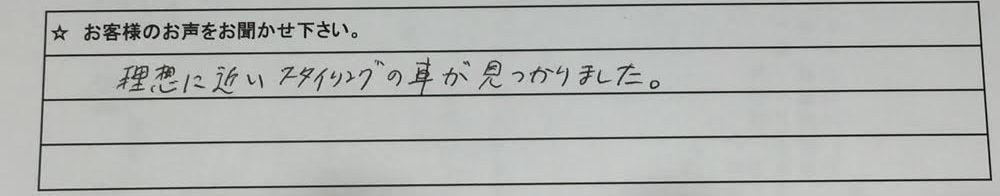 ☆ お客様のお声をお聞かせ下さい。
理想に近いスタイリングの車が見つかりました。